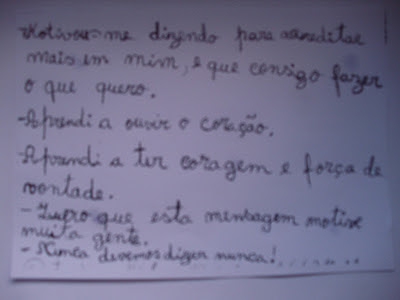 Motivou-me dizendo para acreditar
mais em mim, e que consigo fazer
o que quero.
-Aprendi a ouvir o coração.
-Aprendi a ter coragem e força de
vontade.
- Espero que esta mensagem motive
muita gente.
- Nunca devemos dizer nunca!